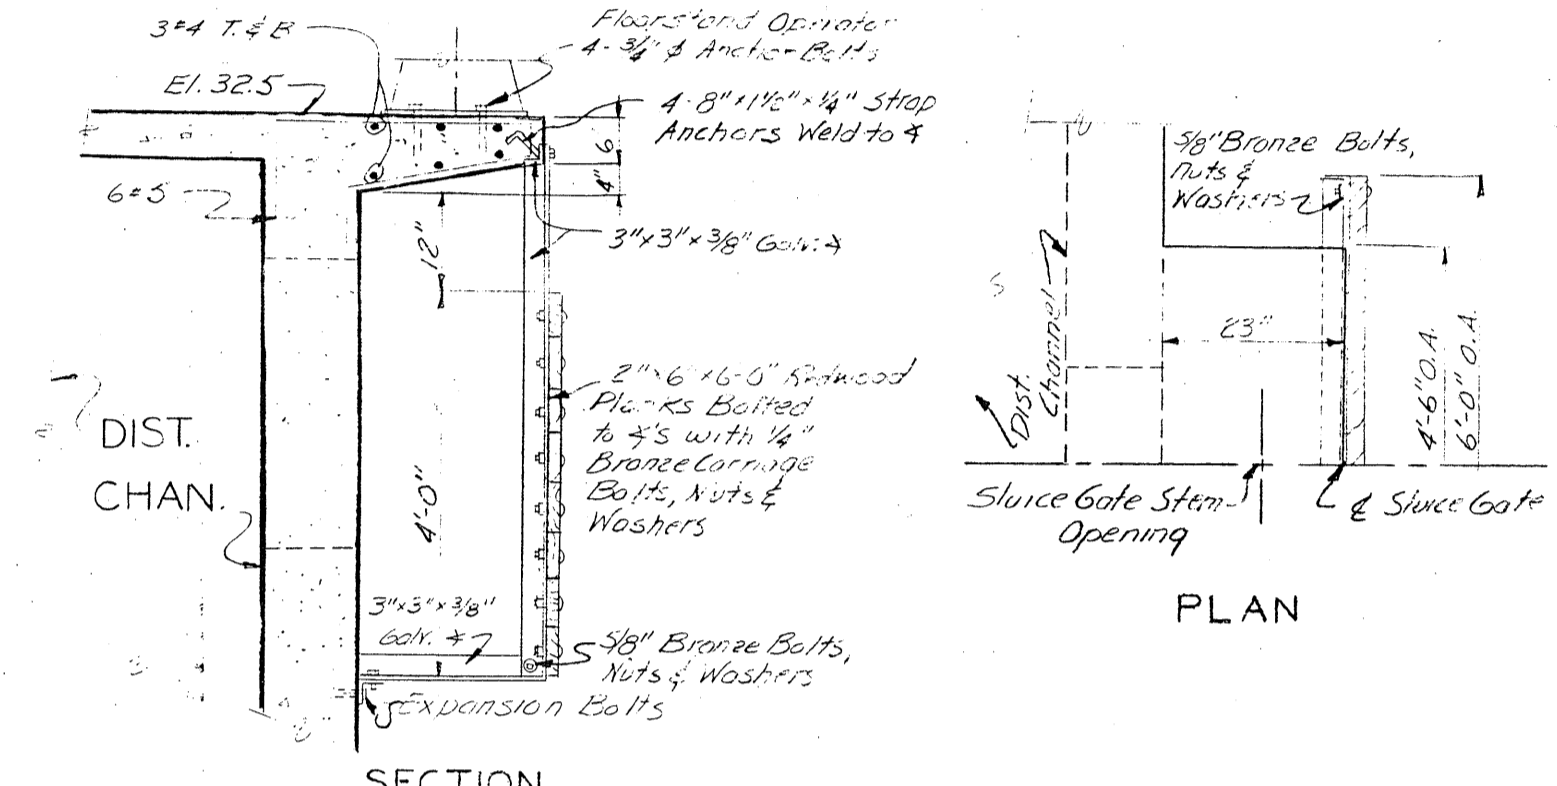 3#4 T. & B
El. 32.5
6#5
Floorstand Operator
4-3/4" ϕ Anchor Bolts
4-8"x1½"x¼" Strap
Anchors Weld to ∡
6
4"
12"
3"x3"x3/8" Galv. ∡
2"x6"x6'-0" Redwood
Planks Bolted
to ∡'s with ¼"
Bronze Carriage
Bolts, Nuts &
Washers
4'-0"
DIST.
CHAN.
3"x3"x3/8"
Galv. ∡
5/8" Bronze Bolts,
Nuts & Washers
Expansion Bolts
SECTION
5/8" Bronze Bolts,
Nuts &
Washers
Dist.
Channel
23"
4'-6" O.A.
6'-0" O.A.
Sluice Gate Stem
Opening
℄ Sluice Gate
PLAN